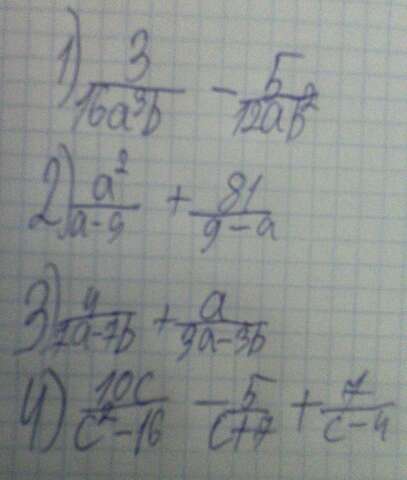 1) 3/(16a³b) - 5/(12ab²)
2) a²/(a-9) + 81/(9-a)
3) y/(7a-7b) + a/(3a-3b)
4) 10c/(c²-16) - 5/(c+7) + 7/(c-4)